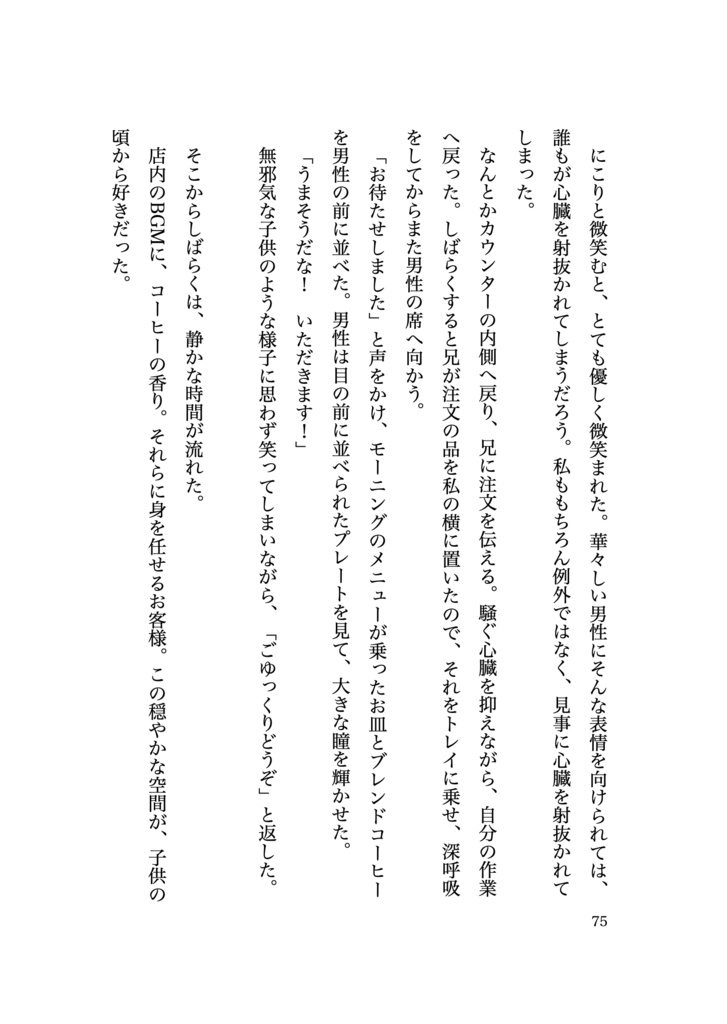 にこりと微笑むと、とても優しく微笑まれた。華々しい男性にそんな表情を向けられては、
誰もが心臓を射抜かれてしまうだろう。私ももちろん例外ではなく、見事に心臓を射抜かれて
しまった。
なんとかカウンターの内側へ戻り、兄に注文を伝える。騒ぐ心臓を抑えながら、自分の作業
へ戻った。しばらくすると兄が注文の品を私の横に置いたので、それをトレイに乗せ、深呼吸
をしてからまた男性の席へ向かう。
「お待たせしました」と声をかけ、モーニングのメニューが乗ったお皿とブレンドコーヒー
を男性の前に並べた。男性は目の前に並べられたプレートを見て、大きな瞳を輝かせた。
「うまそうだな！　いただきます！」
無邪気な子供のような様子に思わず笑ってしまいながら、「ごゆっくりどうぞ」と返した。
そこからしばらくは、静かな時間が流れた。
店内のBGMに、コーヒーの香り。それらに身を任せるお客様。この穏やかな空間が、子供の
頃から好きだった。
75